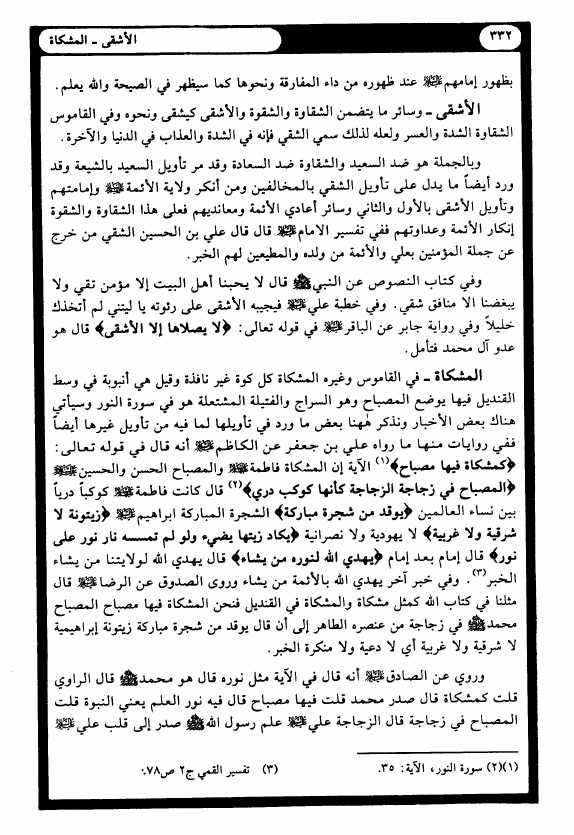 ٣٣٢
الأشقى ـ المشكاة
بظهور إمامهم ﷺ عند ظهوره من داء المفارقة ونحوها كما سيظهر في الصيحة والله يعلم.
الأشقى ـ وسائر ما يتضمن الشقاوة والشقوة والأشقى كيشقى ونحوه وفي القاموس
الشقاوة الشدة والعسر ولعله لذلك سمي الشقي فإنه في الشدة والعذاب في الدنيا والآخرة.
وبالجملة هو ضد السعيد والشقاوة ضد السعادة وقد مر تأويل السعيد بالشيعة وقد
ورد أيضاً ما يدل على تأويل الشقي بالمخالفين ومن أنكر ولاية الأئمة ﷺ وإمامتهم
وتأويل الأشقى بالأول والثاني وسائر أعادي الأئمة ومعانديهم فعلى هذا الشقاوة والشقوة
إنكار الأئمة وعداوتهم ففي تفسير الامام ﷺ قال قال علي بن الحسين الشقي من خرج
عن جملة المؤمنين بعلي والأئمة من ولده والمطيعين لهم الخبر.
وفي كتاب النصوص عن النبي ﷺ قال لا يحبنا أهل البيت إلا مؤمن تقي ولا
يبغضنا الا منافق شقي. وفي خطبة علي ﷺ فيجيبه الأشقى على رثوته يا ليتني لم أتخذك
خليلاً وفي رواية جابر عن الباقر ﷺ في قوله تعالى: ﴿لا يصلاها إلا الأشقى﴾ قال هو
عدو آل محمد فتأمل.
المشكاة ـ في القاموس وغيره المشكاة كل كوة غير نافذة وقيل هي أنبوبة في وسط
القنديل فيها يوضع المصباح وهو السراج والفتيلة المشتعلة هو في سورة النور وسيأتي
هناك بعض الأخبار ونذكر هٰهنا بعض ما ورد في تأويلها لما فيه من تأويل غيرها أيضاً
ففي روايات منها ما رواه علي بن جعفر عن الكاظم ﷺ أنه قال في قوله تعالى:
﴿كمشكاة فيها مصباح﴾(١) الآية إن المشكاة فاطمة ﷺ والمصباح الحسن والحسين ﷺ
﴿المصباح في زجاجة الزجاجة كأنها كوكب دري﴾(٢) قال كانت فاطمة ﷺ كوكباً درياً
بين نساء العالمين ﴿يوقد من شجرة مباركة﴾ الشجرة المباركة ابراهيم ﷺ ﴿زيتونة لا
شرقية ولا غربية﴾ لا يهودية ولا نصرانية ﴿يكاد زيتها يضيء ولو لم تمسسه نار نور على
نور﴾ قال إمام بعد إمام ﴿يهدي الله لنوره من يشاء﴾ قال يهدي الله لولايتنا من يشاء
الخبر(٣). وفي خبر آخر يهدي الله بالأئمة من يشاء وروى الصدوق عن الرضا ﷺ قال
مثلنا في كتاب الله كمثل مشكاة والمشكاة في القنديل فنحن المشكاة فيها مصباح المصباح
محمد ﷺ في زجاجة من عنصره الطاهر إلى أن قال يوقد من شجرة مباركة زيتونة إبراهيمية
لا شرقية ولا غربية أي لا دعية ولا منكرة الخبر.
وروي عن الصادق ﷺ أنه قال في الآية مثل نوره قال هو محمد ﷺ قال الراوي
قلت كمشكاة قال صدر محمد قلت فيها مصباح قال فيه نور العلم يعني النبوة قلت
المصباح في زجاجة قال الزجاجة علي ﷺ علم رسول الله ﷺ صدر إلى قلب علي ﷺ
(١)(٢) سورة النور، الآية: ٣٥.
(٣) تفسير القمي ج٢ ص٧٨.